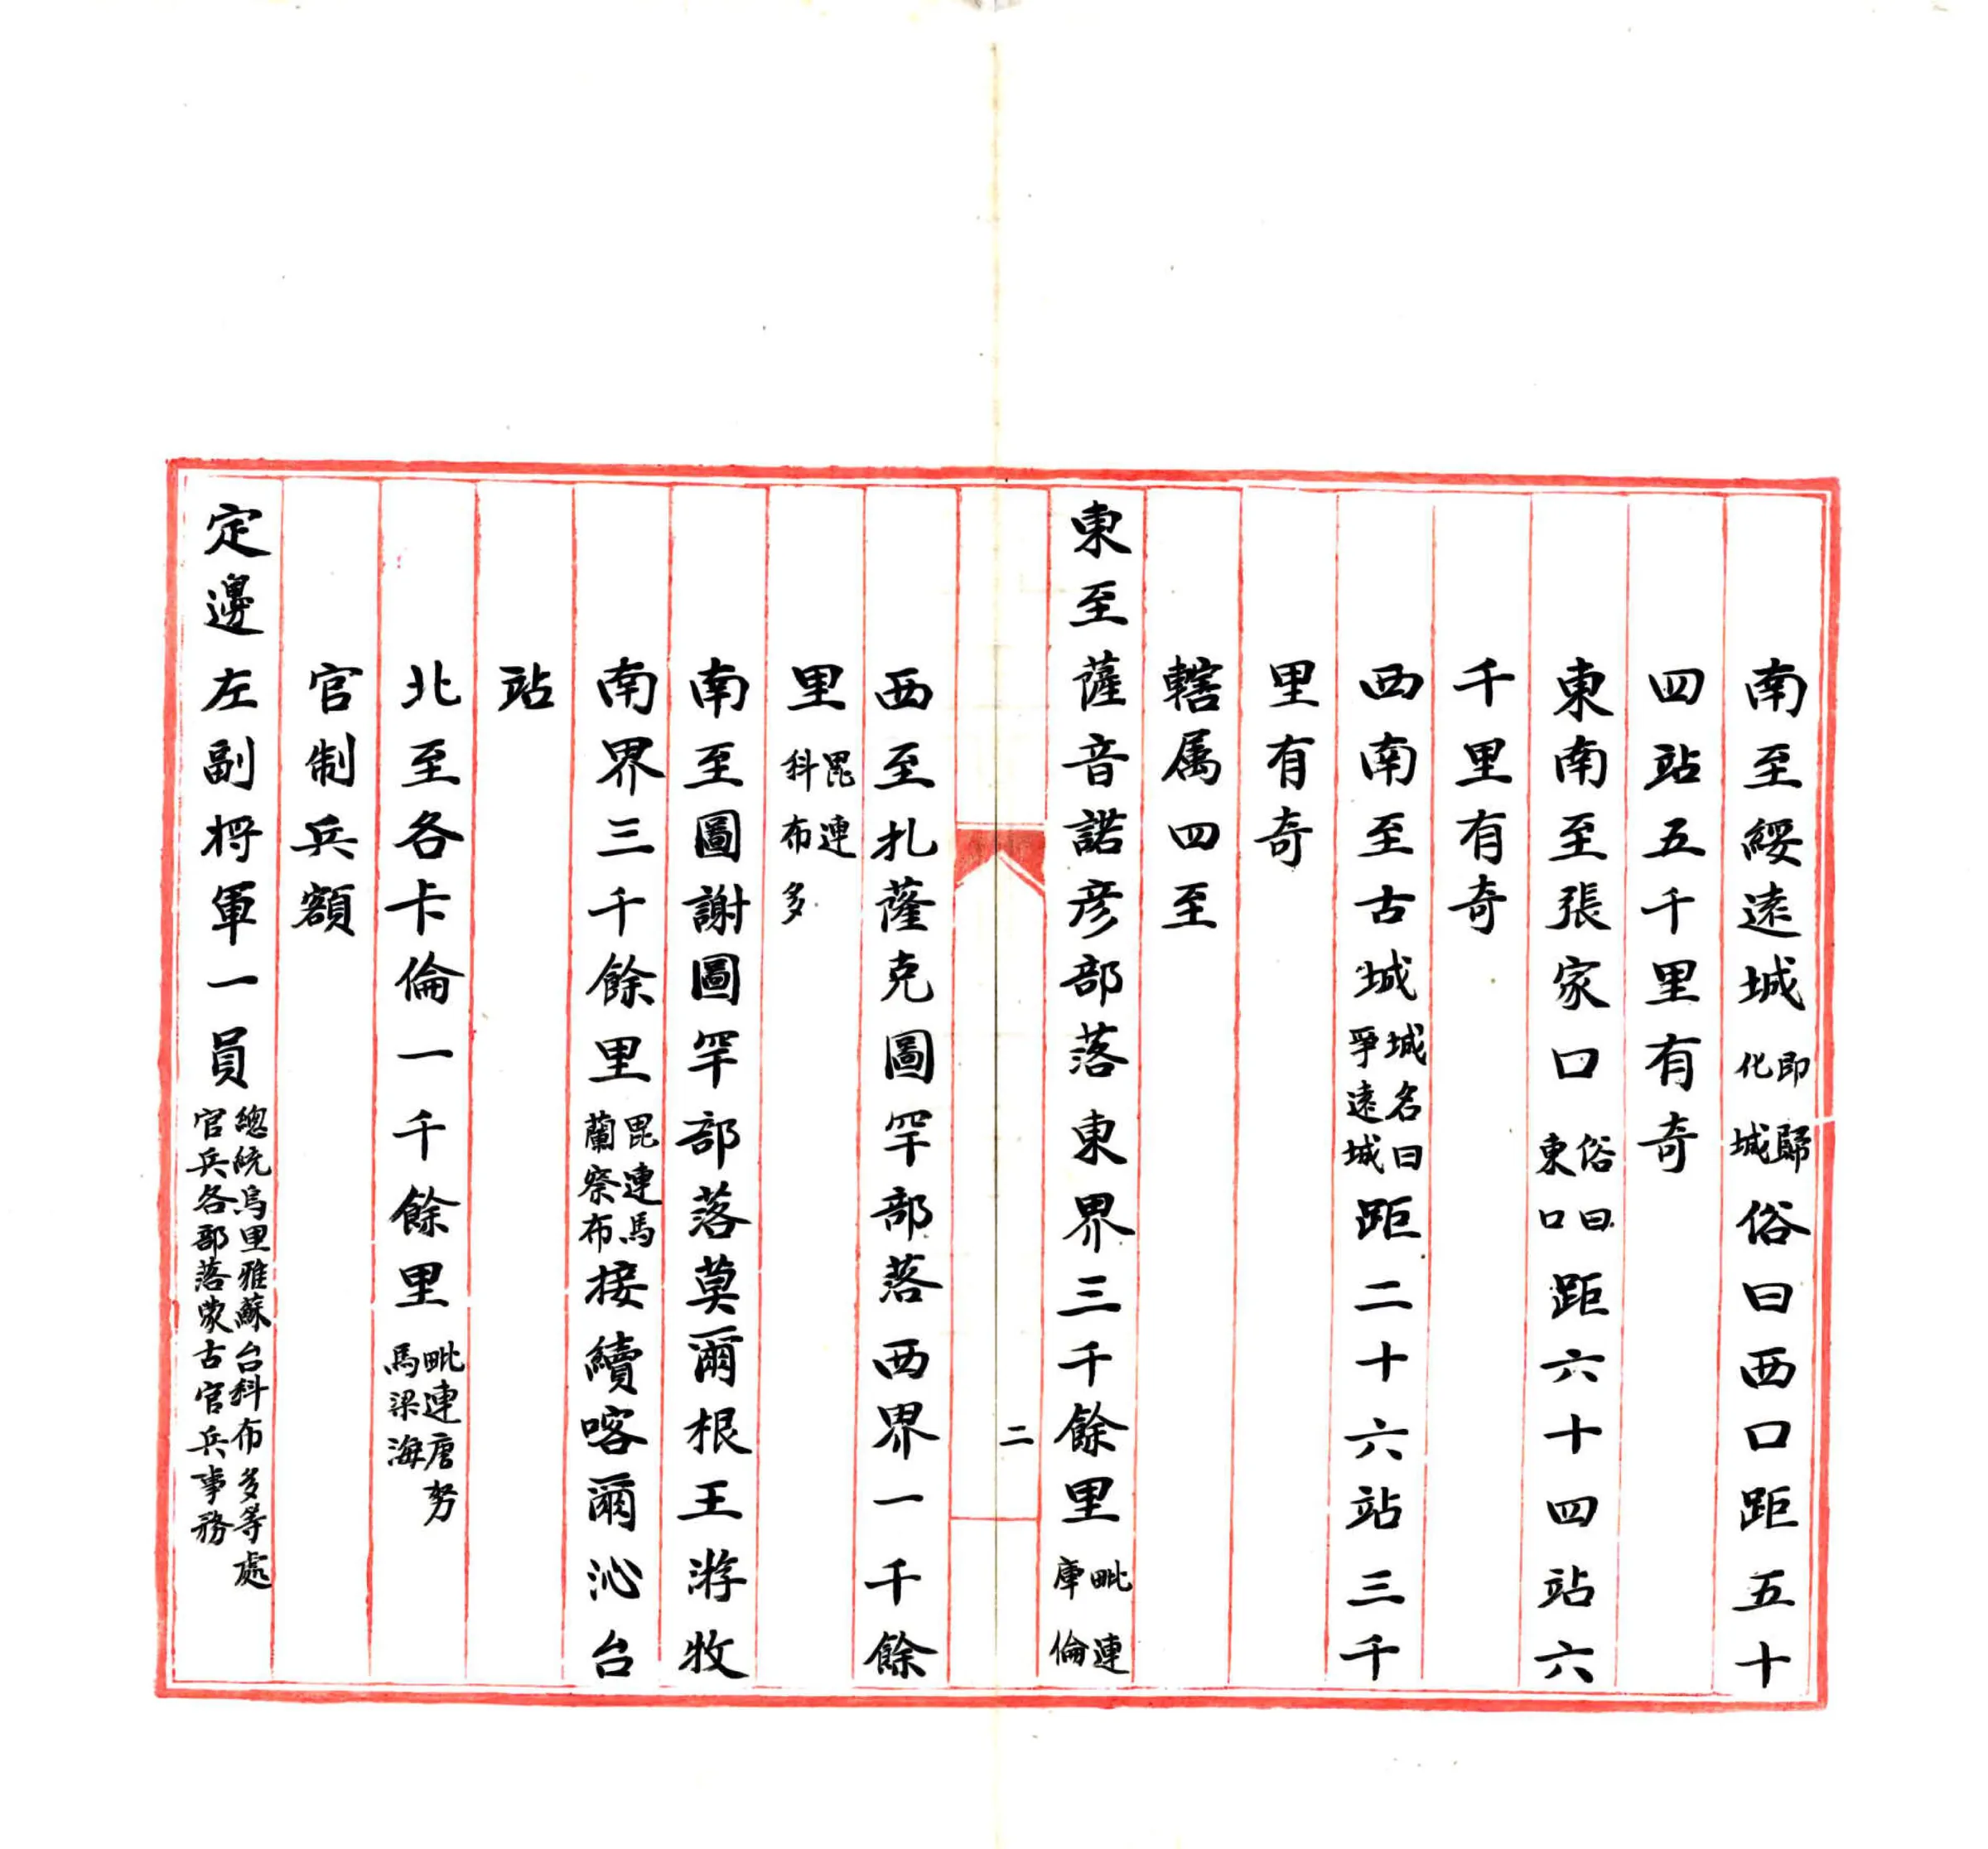 南至綏遠城即歸化城俗曰西口距五十
四站五千里有奇
東南至張家口俗曰東口距六十四站六
千里有奇
西南至古城城名曰孚遠城距二十六站三千
里有奇
轄属四至
東至薩音諾彦部落東界三千餘里毗連庫倫
二
西至扎薩克圖罕部落西界一千餘
里毘連科布多
南至圖謝圖罕部落莫爾根王游牧
南界三千餘里毘連馬蘭察布接續喀爾沁台
站
北至各卡倫一千餘里毗連唐努馬梁海
官制兵額
定邊左副将軍一員總統烏里雅蘇台科布多等處官兵各部落蒙古官兵事務